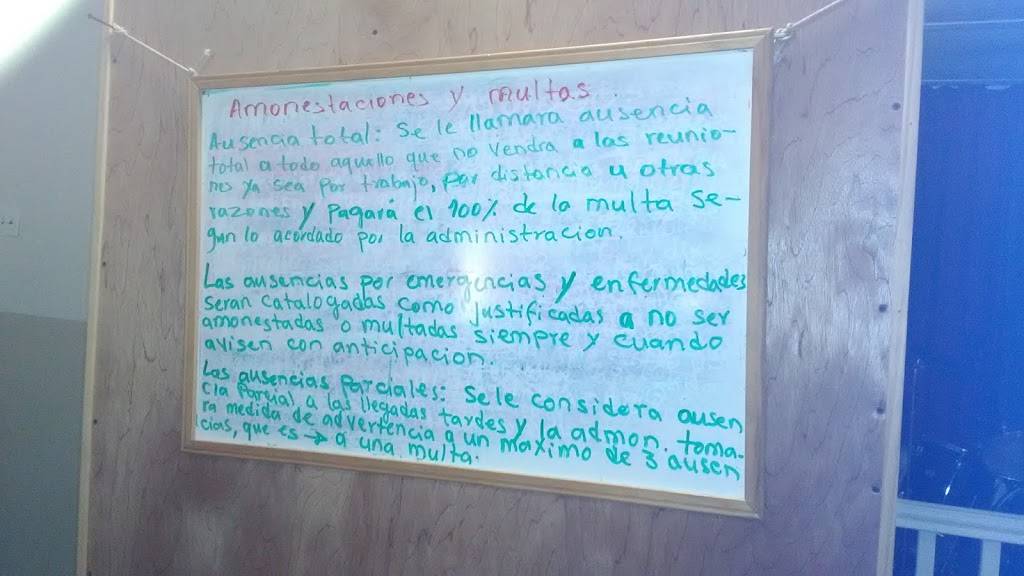 Amonestaciones y multas.
Ausencia total: Se le llamara ausencia
total a todo aquello que no vendra a las reunio-
nes ya sea por trabajo, por distancia u otras
razones y pagará el 100% de la multa se-
gun lo acordado por la administracion.
Las ausencias por emergencias y enfermedades
seran catalogadas como justificadas a no ser
amonestadas o multadas siempre y cuando
avisen con anticipacion.
Las ausencias parciales: Se le considera ausen
cia parcial, a las llegadas tardes y la admon. toma-
ra medida de advertencia a un maximo de 3 ausen
cias, que es → a una multa.